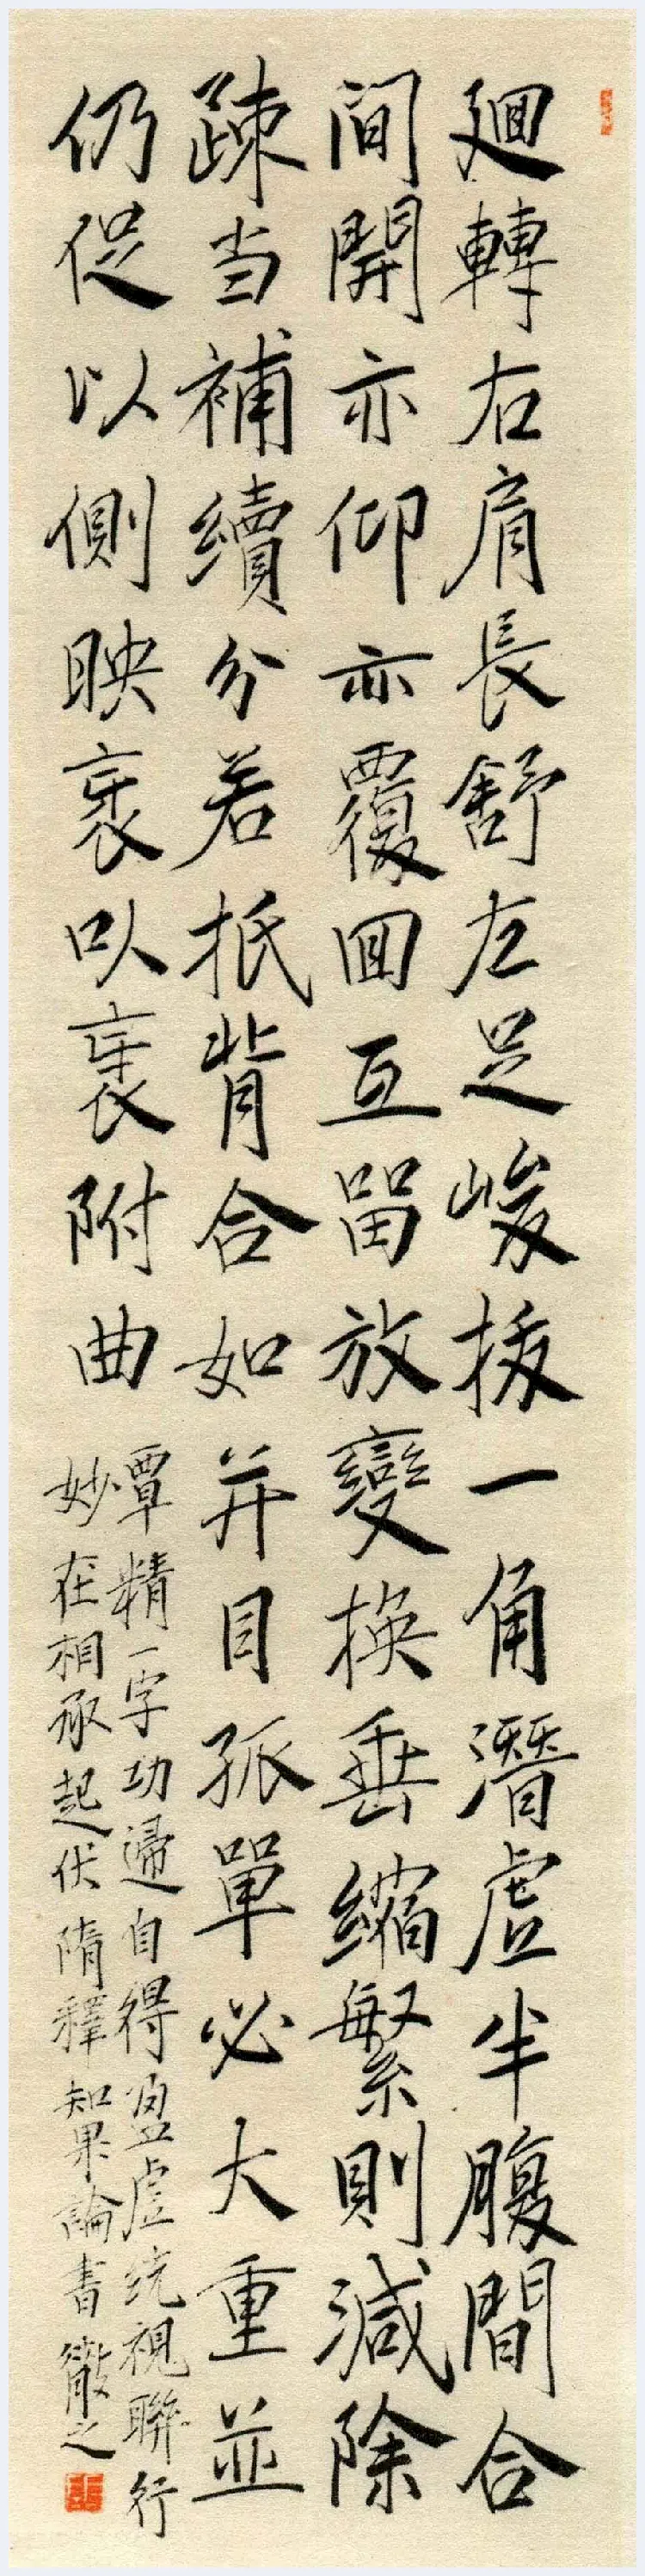 廻轉右肩長舒左足峻拔一角潛虛半腹間合
間開亦仰亦覆回互留放變換垂縮繁則減除
疎当補續分若抵背合如并目孤單必大重並
仍促以側映衺以衺附曲
覃精一字功歸自得盈虛统視聯行
妙在相承起伏隋釋智果論書徹之